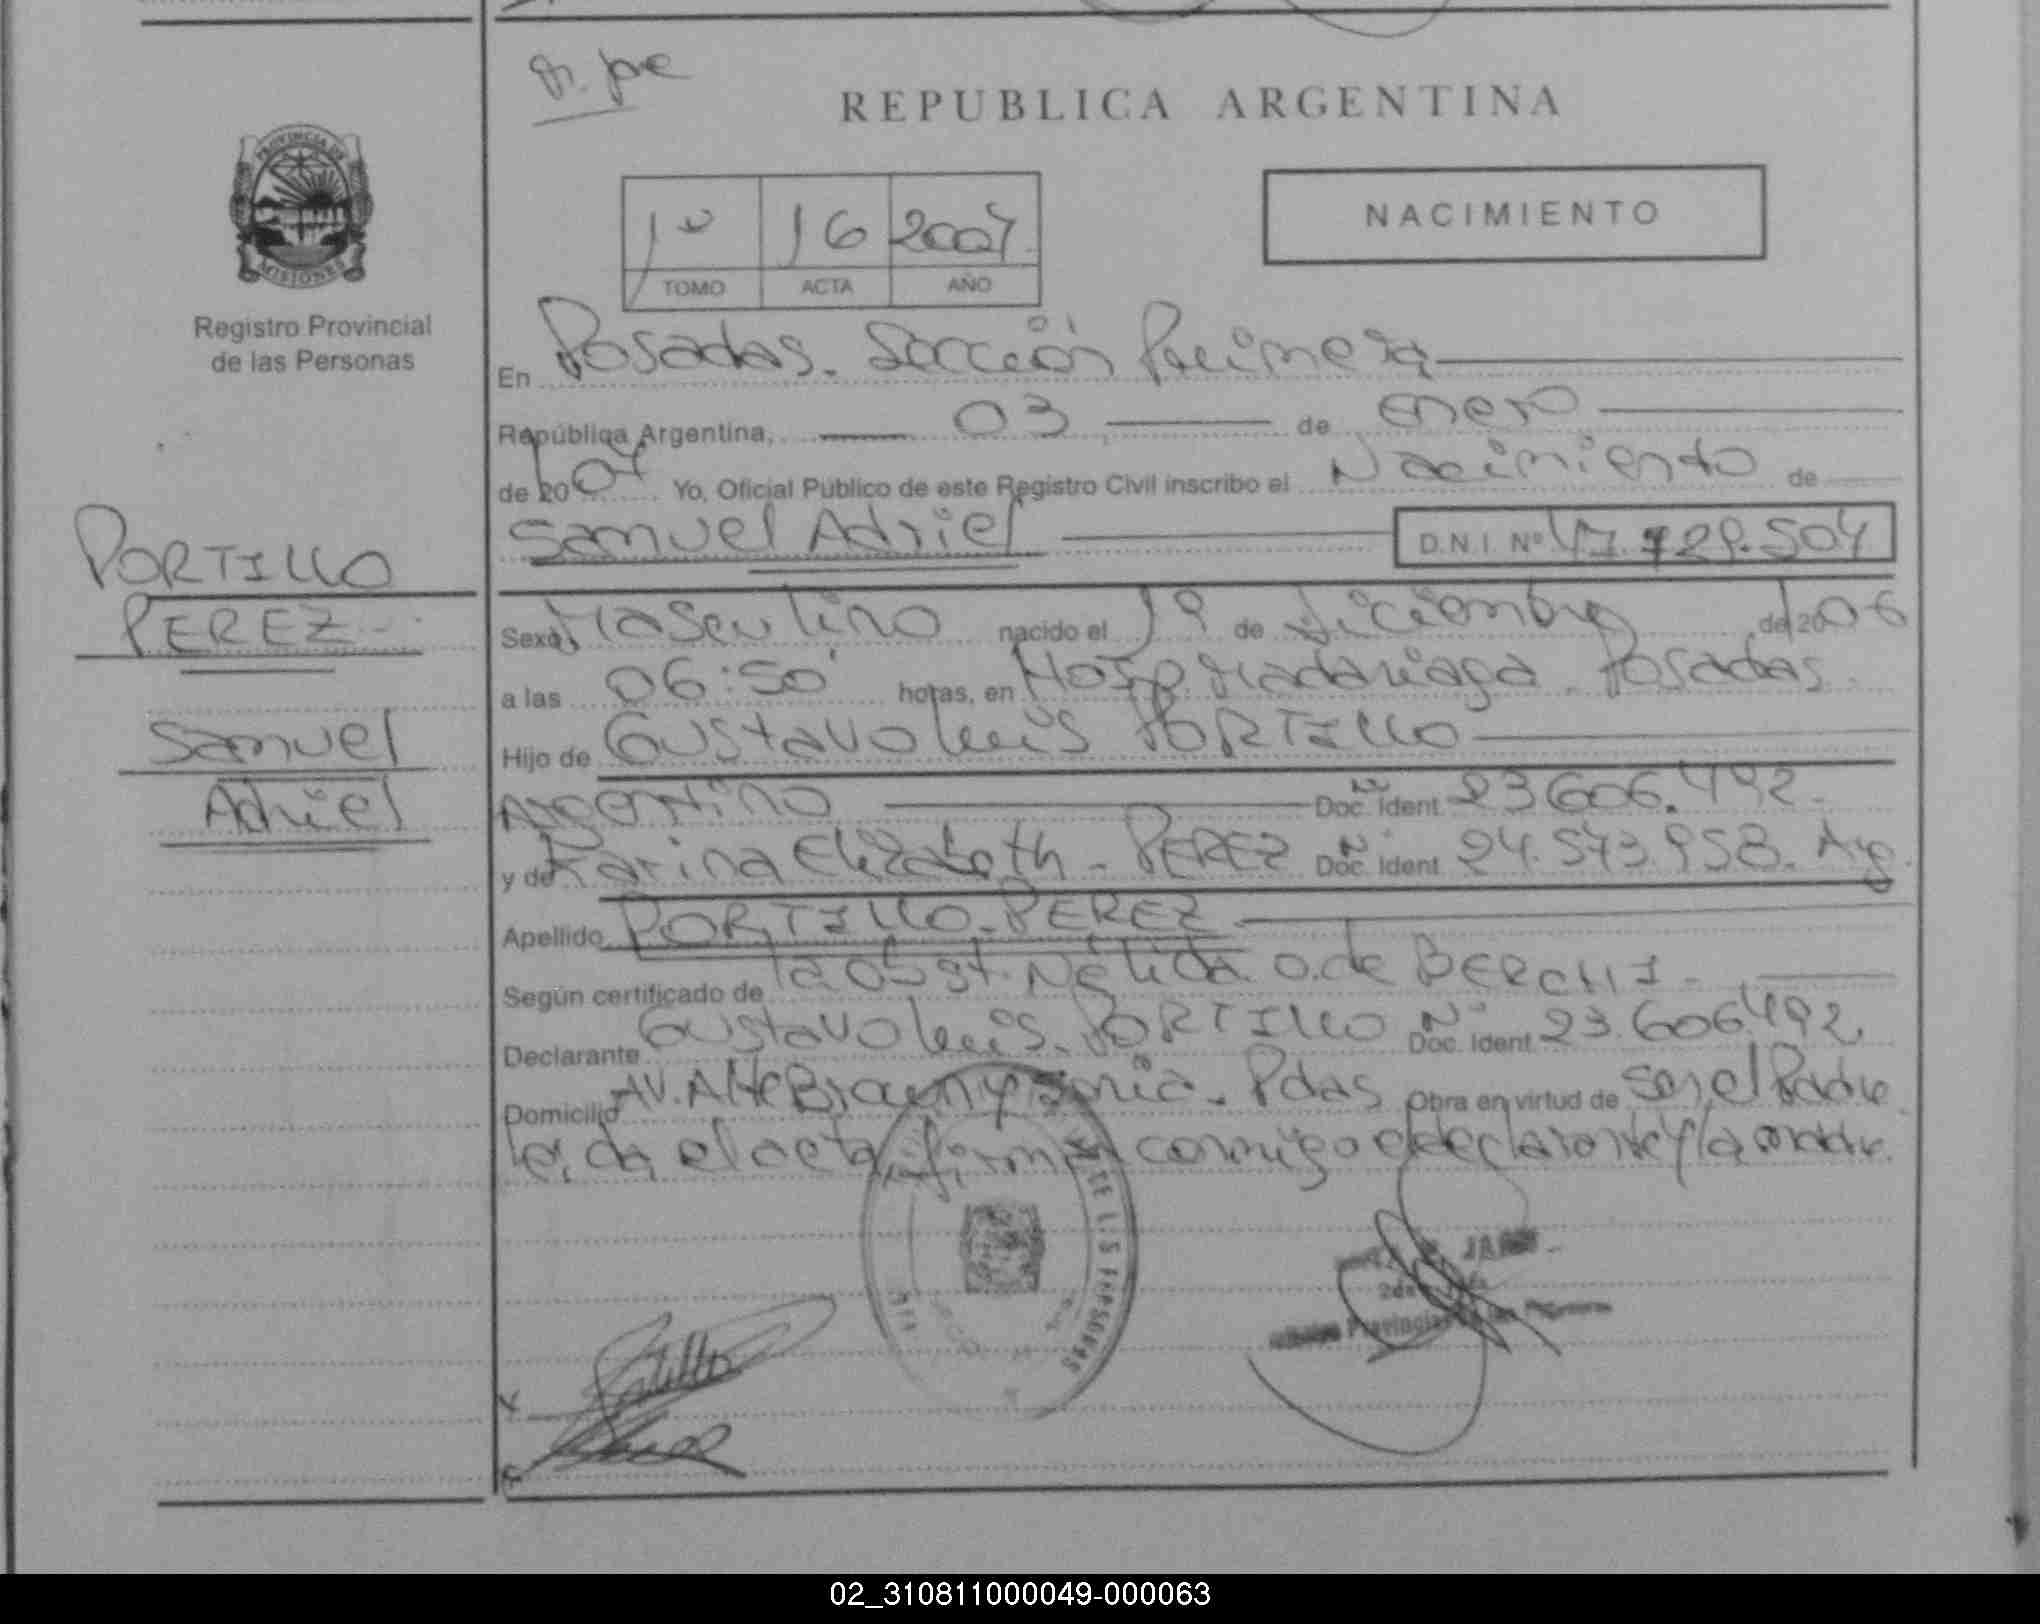 REPUBLICA ARGENTINA
PROVINCIA DE
MISIONES
Registro Provincial
de las Personas
1º 16 2007
TOMO ACTA AÑO
NACIMIENTO
En Posadas. Sección Primera
República Argentina, 03 de enero
de 2007 Yo, Oficial Público de este Registro Civil inscribo el Nacimiento de
Samuel Adriel D.N.I. Nº
PORTILLO
PEREZ
Samuel
Adriel
Sexo Masculino nacido el 1º de diciembre de 2006
a las 06:50 horas, en Hosp. Madariaga. Posadas
Hijo de Gustavo Luis PORTILLO
Argentino Nº Doc. Ident. 23.606.492
y de Karina Elizabeth - PEREZ Nº Doc. Ident. 24.573.958. Arg.
Apellido PORTILLO-PEREZ
Según certificado de la Obst. Nélida O. de BERCHI
Declarante Gustavo Luis. PORTILLO Nº Doc. Ident. 23.606.492
Domicilio AV. Alte Brown y Pdas Obra en virtud de ser el Padre
leida el acta, firman conmigo el declarante y la madre.
02_310811000049-000063